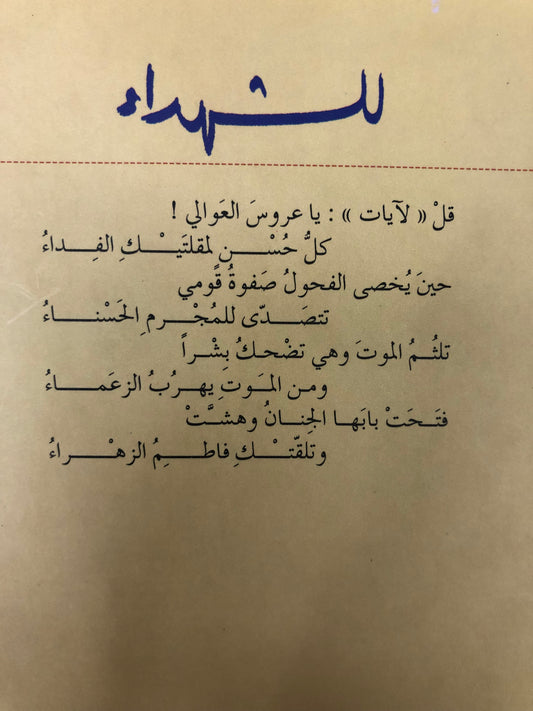 للشهداء
قلْ « لآيات » : يا عروسَ العَوالي !
كلُّ حُسْنٍ لمقلتَيْكِ الفِداءُ
حينَ يُخصى الفحولُ صَفوةُ قًومي
تتصَدّى للمُجْرمِ الحَسْناءُ
تلثُمُ الموتَ وهي تضْحكُ بِشْراً
ومن المَوتِ يهرُبُ الزعَماءُ
فتَحَتْ بابَها الجِنانُ وهشَّتْ
وتلقّتْكِ فاطِمُ الزهْراءُ